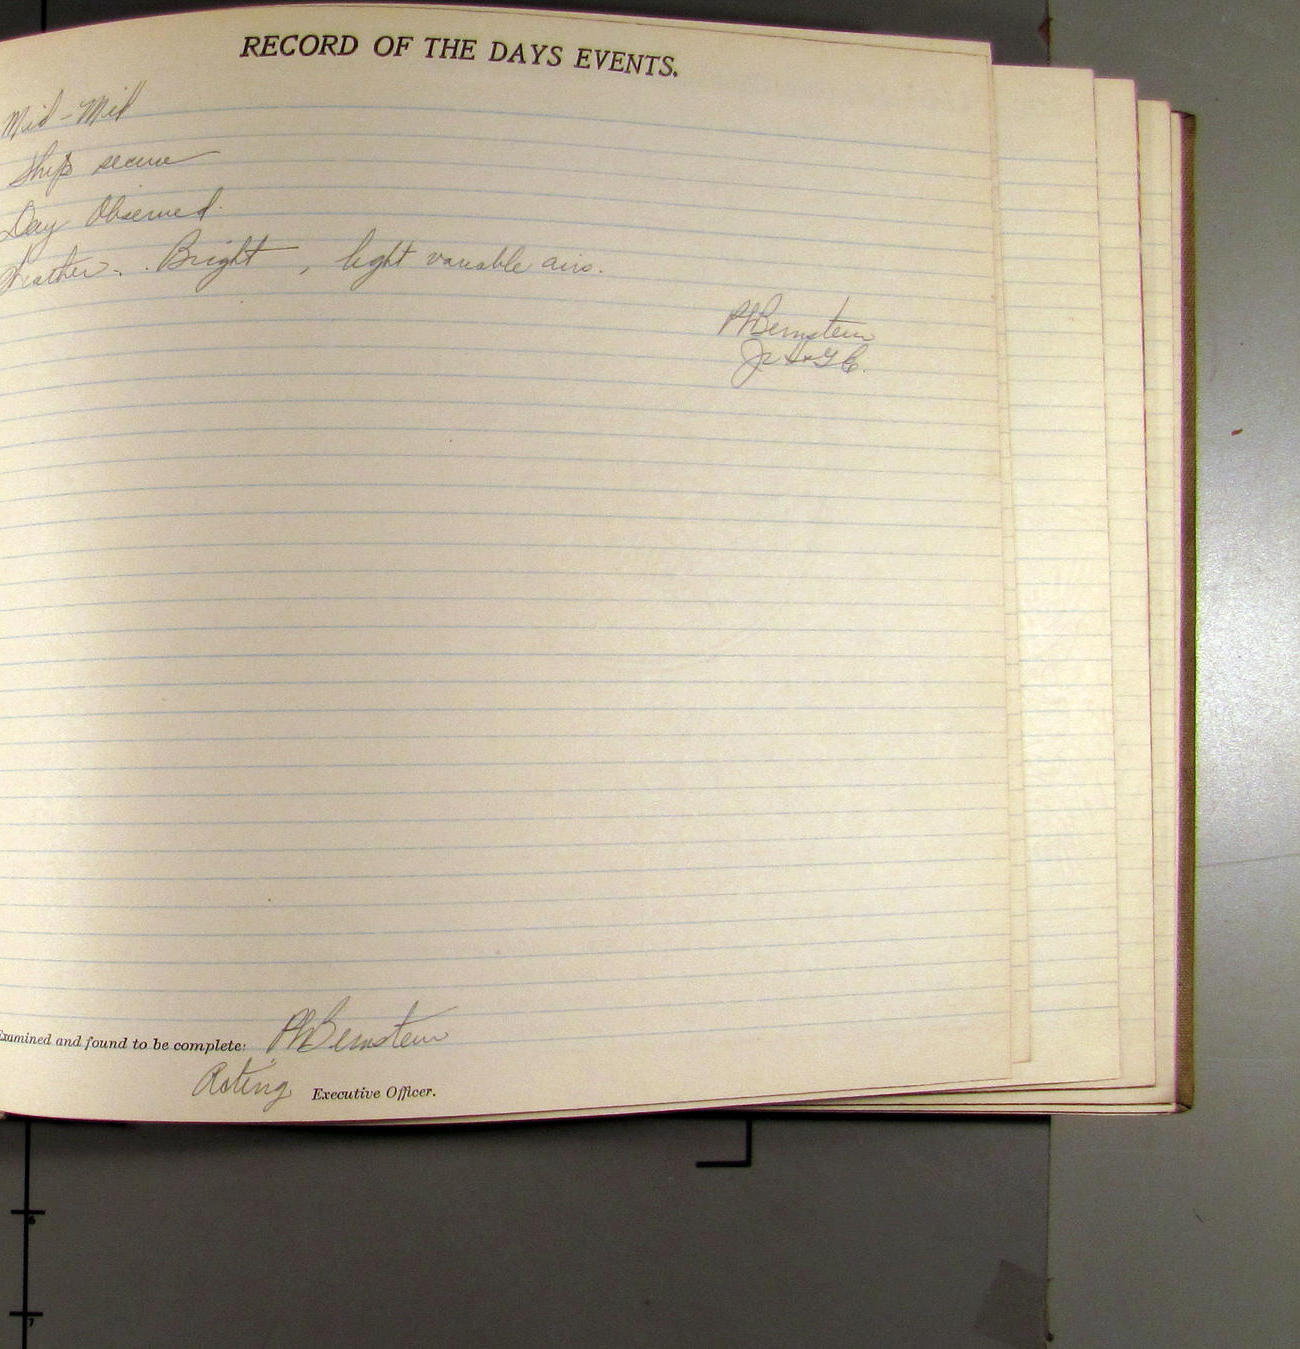 RECORD OF THE DAYS EVENTS.
Mid - Mid
Ship secure
Day Observed.
Weather. Bright, light variable airs.
PhBernstein
Jr H&GE.
Examined and found to be complete: PhBernstein
Acting Executive Officer.
6
7